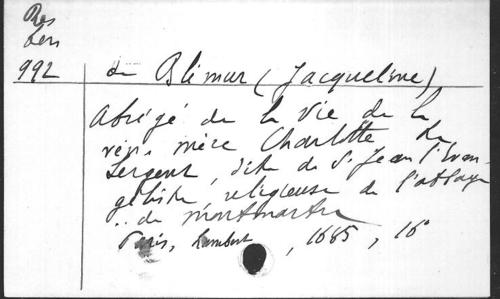 Res
Len
992
de Blémur (Jacqueline)
Abrégé de la vie de la
vén. mère Charlotte Le
Sergent, dite de St Jean l'Évan-
géliste, religieuse de l'abbaye
.. de Montmartre
Paris, Lambert, 1685, 16°